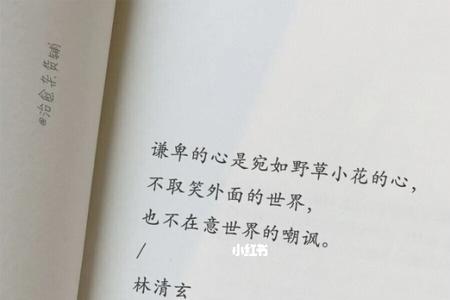 @治愈杂货铺
谦卑的心是宛如野草小花的心，
不取笑外面的世界，
也不在意世界的嘲讽。
小红书
/
林清玄